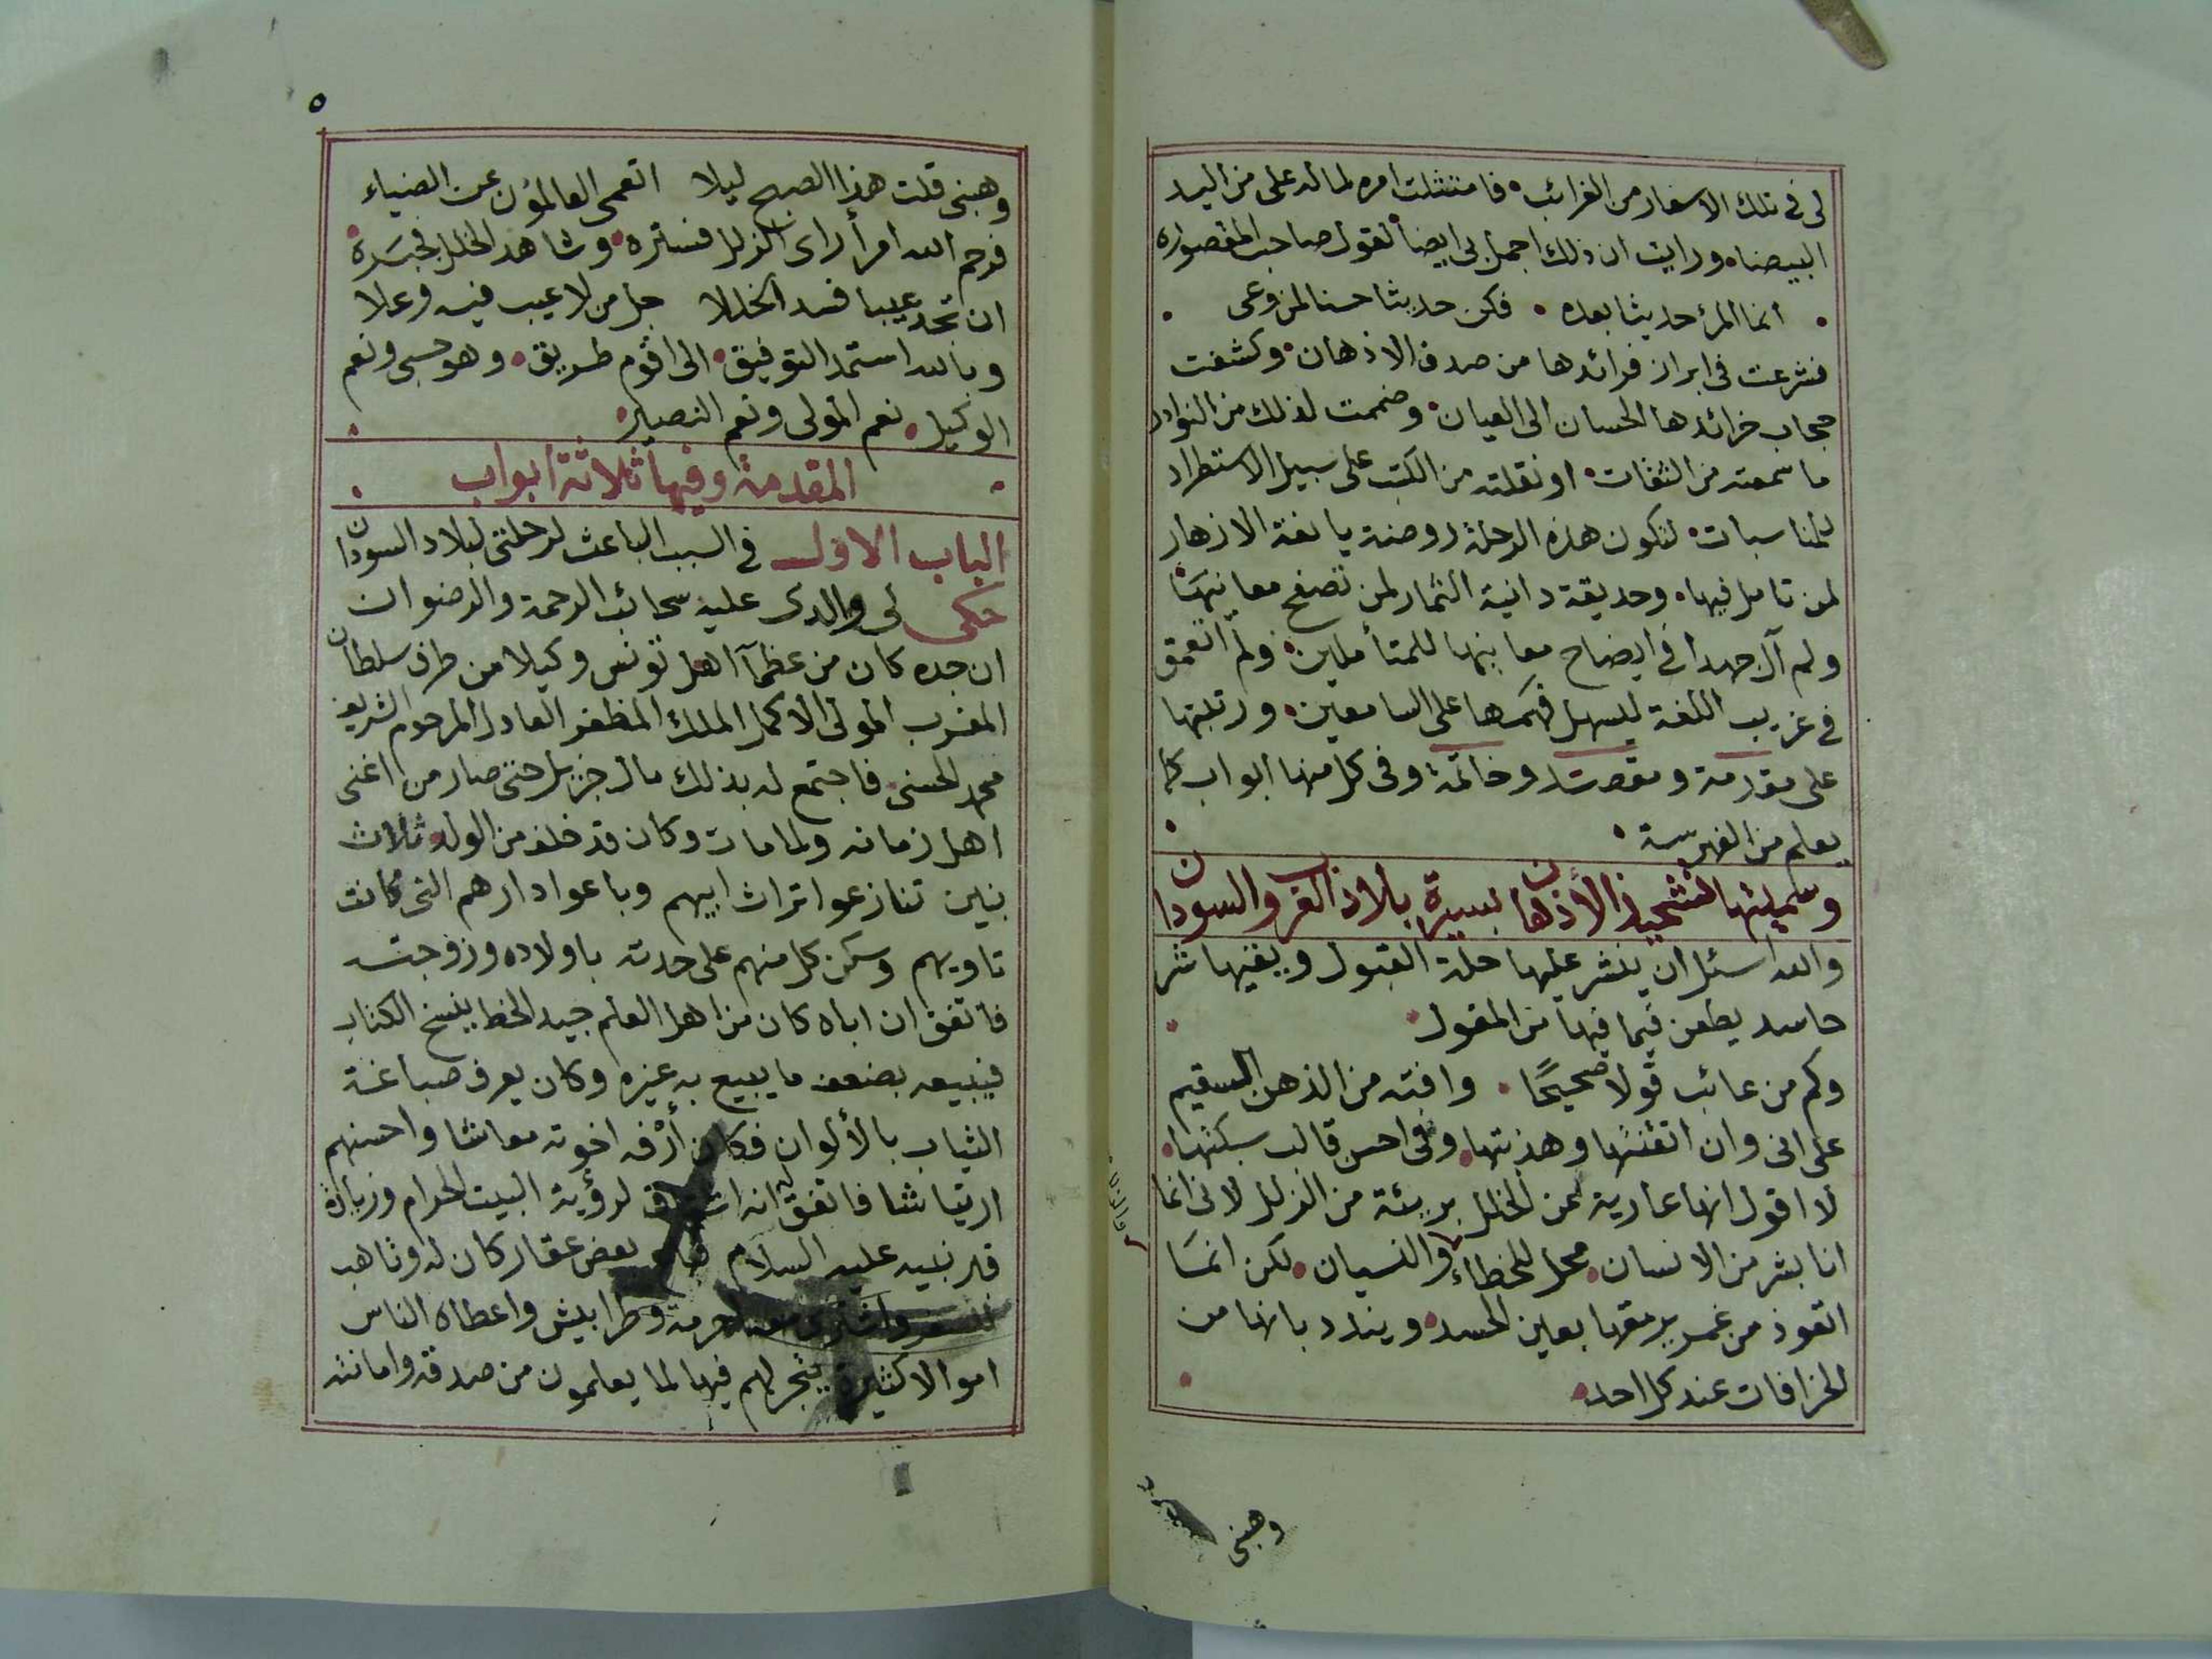 لى فى تلك الاسفار من الغرائب فامتثلت امره لما له على من اليد
البيضاء ورايت ان ذلك اجمل بى ايضا لقول صاحب المقصوره
انما المرء حديثا بعده فكن حديثا حسنا لمن وعى
فشرعت فى ابراز فرائدها من صدف الاذهان وكشفت
حجاب خرائدها الحسان الى العيان وضممت لذلك من النوادر
ما سمعته من الثقات او نقلته من الكتب على سبيل الاستطراد
للمناسبات لتكون هذه الرحلة روضة يانعة الازهار
لمن تامل فيها وحديقة دانية الثمار لمن تصفح معانيها
ولم آل جهدا فى ايضاح معانيها للمتأملين ولم اتعمق
فى غريب اللغة ليسهل فهمها على السامعين ورتبتها
على مقدمة ومقصد وخاتمة وفى كل منها ابواب كما
يعلم من الفهرسة
وسميتها تشحيذ الأذهان بسيرة بلاد العرب والسودان
والله اسئل ان ينشر عليها حلة القبول ويقيها شر
حاسد يطعن فيما فيها من المقول
وكم من عائب قولا صحيحًا وافته من الذهن السقيم
على انى وان اتقنتها وهذبتها وفى احسن قالب سبكتها
لا اقول انها عارية عن الخلل بريئة من الزلل لانى انما
انا بشر من الانسان محل للخطاء والنسيان لكن انما
اتعوذ من غمر يرمقها بعين الحسد ويندد بانها من
الخرافات عند كل احد
وهبنى
٥
وهبنى قلت هذا الصبح ليلا اتعمى العالمون عن الضياء
فرحم الله امرأ راى الزلل فستره وشاهد الخلل فجبره
ان تجد عيبا فسد الخللا جل من لا عيب فيه وعلا
وبالله استمد التوفيق الى اقوم طريق وهو حسبى ونعم
الوكيل نعم المولى ونعم النصير
المقدمة وفيها ثلاثة ابواب
الباب الاول فى السبب الباعث لرحلتى لبلاد السودان
حكى لى والدى عليه سحائب الرحمة والرضوان
ان جده كان من عظمآ اهل تونس وكيلا من طرف سلطان
المغرب المولى الاكمل الملك المظفر العادل المرحوم الشريف
محمد الحسنى فاجتمع له بذلك مال جزيل حتى صار من اغنى
اهل زمانه ولما مات وكان قد خلف من الولد ثلاث
بنين تنازعوا تراث ابيهم وباعوا دارهم التى كانت
تاويهم وسكن كل منهم على حدته باولاده وزوجته
فاتفق ان اباه كان من اهل العلم جيد الخط ينسخ الكتاب
فيبيعه بضعف ما يبيع به غيره وكان يعرف صباغة
الثياب بالألوان فكان أرْفه اخوته معاشا واحسنهم
ارتياشا فاتفق انه اشتاق لرؤية البيت الحرام وزيارة
قبر نبيه عليه السلام فباع بعض عقار كان له وتاهب
للسفر واشترى معه احرمة وطرابيش واعطاه الناس
اموالا كثيرة يتجر لهم فيها لما يعلمون من صدقه وامانته